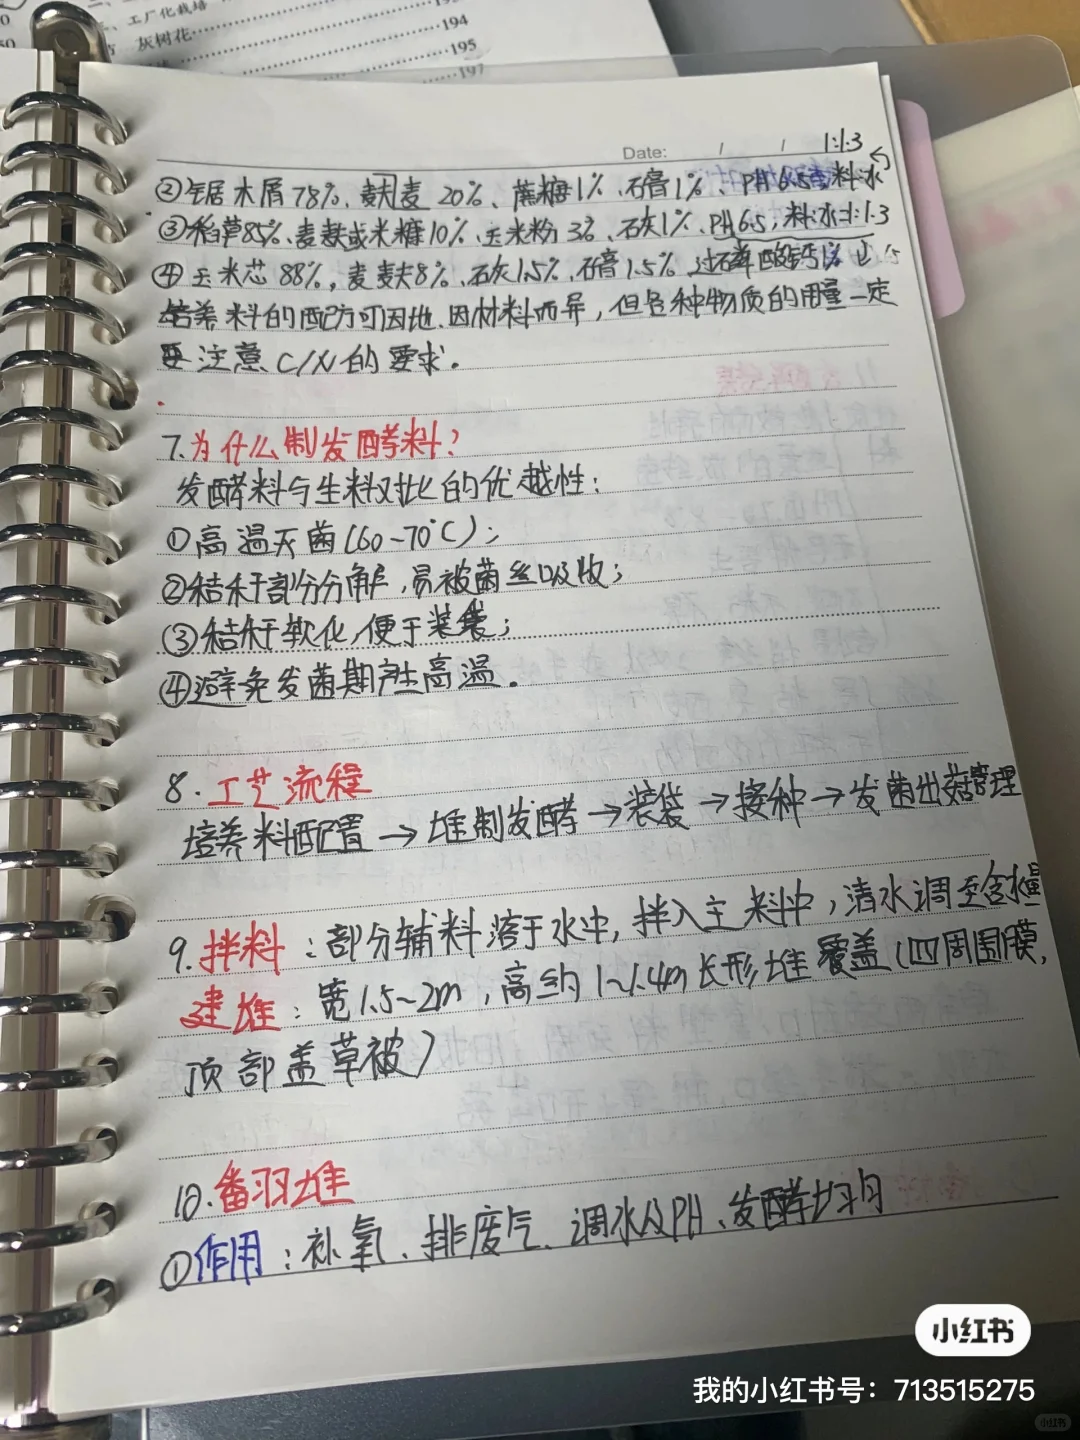 工厂化栽培
灰树花
194
195
197
Date: / / 1:1.3
②锯木屑78%、麸麦20%、蔗糖1%、石膏1%、PH6.5 料水
③稻草85%、麦麸或米糠10%、玉米粉3%、石灰1%、PH6.5,料:水=1:1.3
④玉米芯88%,麦麸8%、石灰1.5%、石膏1.5%、过磷酸钙1%
培养料的配方可因地、因材料而异,但各种物质的用量一定
要注意C/N的要求。
7.为什么制发酵料?
发酵料与生料对比的优越性:
①高温灭菌(60~70℃);
②秸秆部分分解,易被菌丝吸收;
③秸秆软化,便于装袋;
④避免发菌期产生高温。
8.工艺流程
培养料配置→堆制发酵→装袋→接种→发菌出菇管理
9.拌料:部分辅料溶于水中,拌入主料中,清水调至含水量
建堆:宽1.5~2m,高约1~1.4m长形堆覆盖(四周围膜,
顶部盖草被)
10.翻堆
①作用:补氧、排废气、调水及PH、发酵均匀
小红书
我的小红书号:713515275
小红书